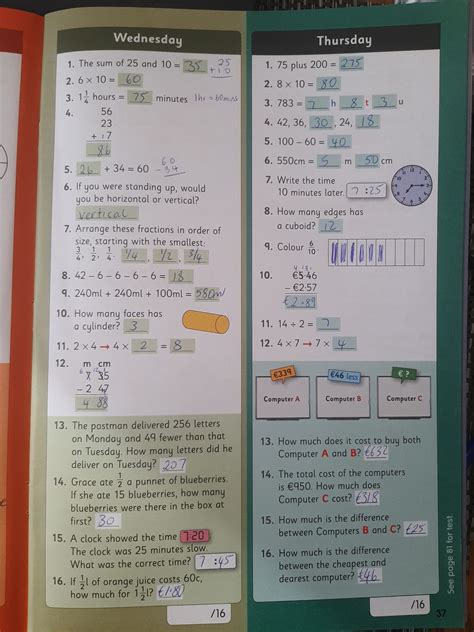 Wednesday
1. The sum of 25 and 10 = 35
25
+10
2. 6 × 10 = 60
3. 1 1/4 hours = 75 minutes 1hr = 60mins
4. 56
23
+ 17
86
5. 26 + 34 = 60
60
-34
6. If you were standing up, would
you be horizontal or vertical?
vertical
7. Arrange these fractions in order of
size, starting with the smallest:
3/4, 1/2, 1/4. 1/4, 1/2, 3/4
8. 42 – 6 – 6 – 6 – 6 = 18
9. 240ml + 240ml + 100ml = 580ml
10. How many faces has
a cylinder? 3
11. 2 × 4 → 4 × 2 = 8
12. m cm
7 35
– 2 47
4 88
13. The postman delivered 256 letters
on Monday and 49 fewer than that
on Tuesday. How many letters did he
deliver on Tuesday? 207
14. Grace ate 1/2 a punnet of blueberries.
If she ate 15 blueberries, how many
blueberries were there in the box at
first? 30
15. A clock showed the time 7:20
The clock was 25 minutes slow.
What was the correct time? 7:45
16. If 1/2l of orange juice costs 60c,
how much for 1 1/2l? €1.80
/16
Thursday
1. 75 plus 200 = 275
2. 8 × 10 = 80
3. 783 = 7 h 8 t 3 u
4. 42, 36, 30, 24, 18
5. 100 – 60 = 40
6. 550cm = 5 m 50 cm
7. Write the time
10 minutes later. 7:25
8. How many edges has
a cuboid? 12
9. Colour 6/10
10. €5.46
– €2.57
€2.89
11. 14 ÷ 2 = 7
12. 4 × 7 → 7 × 4
€339
€46 less
€ ?
Computer A
Computer B
Computer C
13. How much does it cost to buy both
Computer A and B? €632
14. The total cost of the computers
is €950. How much does
Computer C cost? €318
15. How much is the difference
between Computers B and C? €25
16. How much is the difference
between the cheapest and
dearest computer? €46
/16
See page 81 for test
37